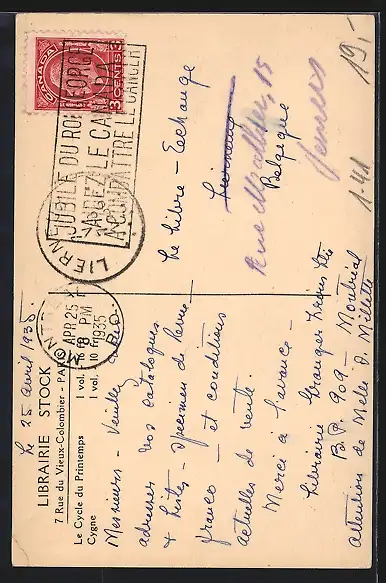 Le 25 avril 1935
LIBRAIRIE STOCK
7 Rue du Vieux-Colombier - PARIS
Le Cycle du Printemps 1 vol.
Cygne 1 vol. 10 fr
Messieurs - Veuillez
adresser vos Catalogues
& listes - specimen de Revue
franco - et conditions
actuelles de vente.
Merci à l'avance -
Librairie Granger Frères Ltée
B.P. 909 - Montréal
attention de Melle D. Millette
CANADA
3 CENTS 3
JUBILE DU ROI GEORGE V
LE CANCER
APR 25
8 PM
1935
P.Q.
LIERNE
Le Livre - Echange
Belgique
15
19,-
1-41